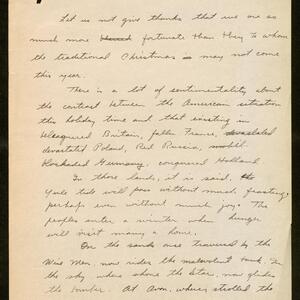 Let us not give thanks that we are so
much more blessed fortunate than they to whom
the traditional Christmas may not come
this year.
There is a lot of sentimentality about
the contrast between the American situation
this holiday time and that existing in
beleaguered Britain, fallen France, devastated
devastated Poland, Red Russia,
blockaded Germany, conquered Holland.
In those lands, it is said, the
Yule tide will pass without much feasting,
perhaps even without much joy. The
peoples enter a winter when hunger
will visit many a home.
On the sands once traversed by the
Wise Men, now rides the malevolent tank. In
the sky where shone the Star, now glides
the bomber. At Avon, where strolled the